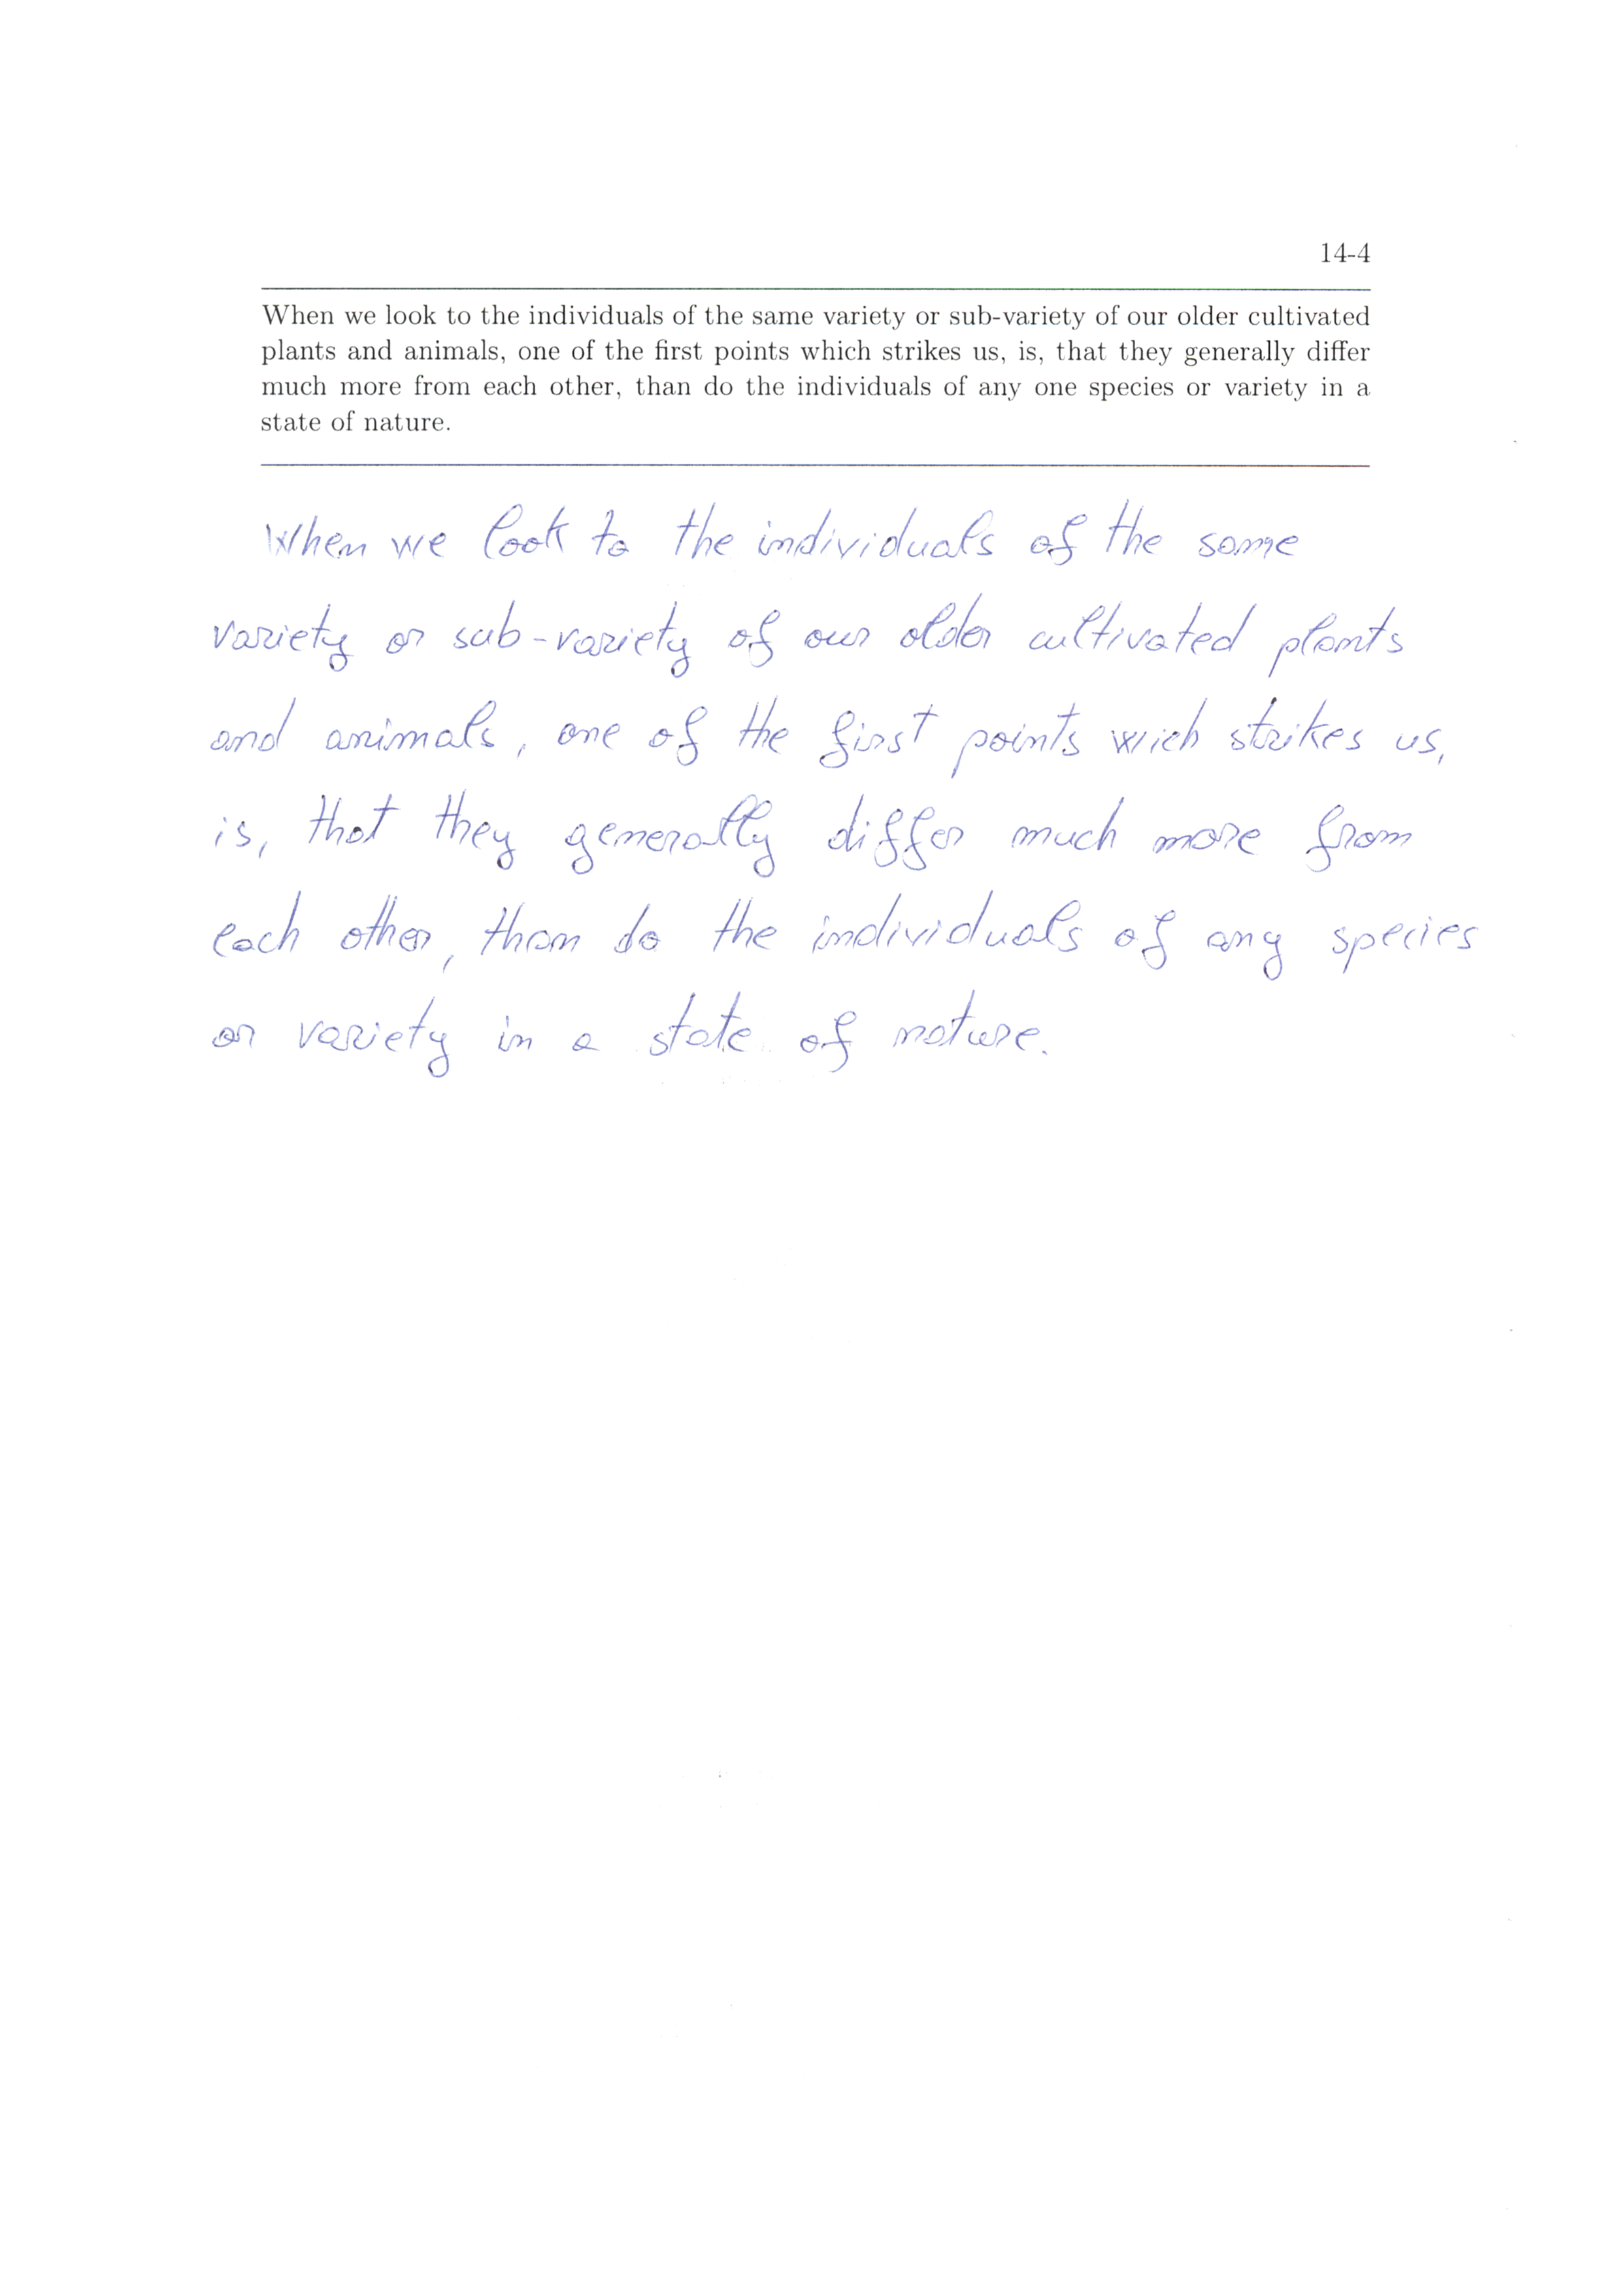 14-4
When we look to the individuals of the same variety or sub-variety of our older cultivated
plants and animals, one of the first points which strikes us, is, that they generally differ
much more from each other, than do the individuals of any one species or variety in a
state of nature.
When we look to the individuals of the same
variety or sub-variety of our older cultivated plants
and animals, one of the first points wich strikes us,
is, that they generally differ much more from
each other, than do the individuals of any species
or variety in a state of nature.